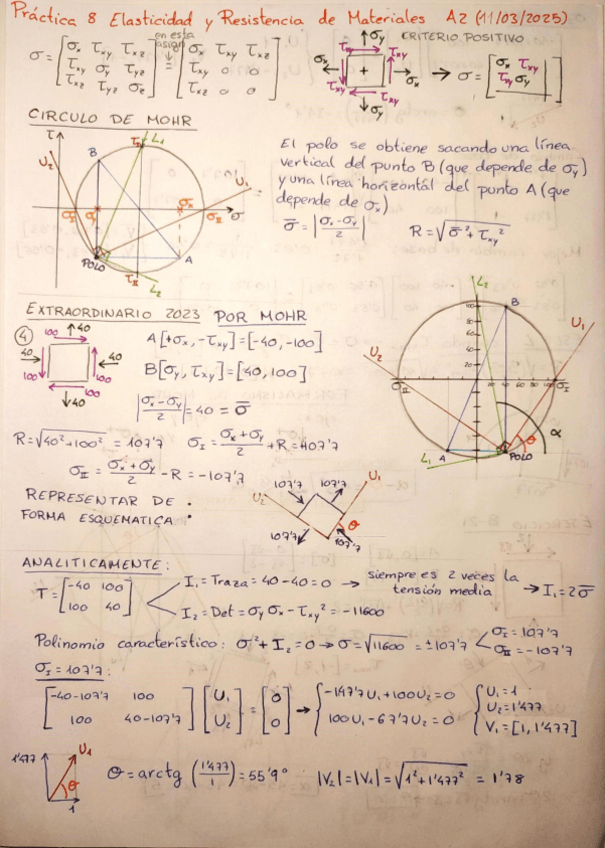 Práctica 8 Elasticidad y Resistencia de Materiales A2 (11/03/2025)
σ = [σx τxy τxz; τxy σy τyz; τxz τyz σz] =en esta asign= [σx τxy τxz; τxy 0 0; τxz 0 0]
CRITERIO POSITIVO
σy τxy σx + σx τxy τxy σy → σ = [σx τxy; τxy σy]
CIRCULO DE MOHR
τ U2 B τI L1 U1 σII σy σx σII σ POLO A τII L2
El polo se obtiene sacando una línea
vertical del punto B (que depende de σy)
y una línea horizontal del punto A (que
depende de σx)
σ̅ = |(σx-σy)/2| R = √(σ̅² + τxy²)
EXTRAORDINARIO 2023 POR MOHR
④ 100 ↑40 40 100 100 40 100 ↓40
A[+σx, -τxy] = [-40, -100]
B[σy, τxy] = [40, 100]
|(σx-σy)/2| = 40 = σ̅
R = √(40²+100²) = 107'7 σI = (σx+σy)/2 + R = 107'7
σII = (σx+σy)/2 - R = -107'7
L2 B U1 U2 σII σI α θ A L1 POLO
REPRESENTAR DE
FORMA ESQUEMATICA:
U2 107'7 107'7 U1 107'7 107'7 θ
ANALITICAMENTE:
T = [-40 100; 100 40]
I1 = Traza = 40-40 = 0 → siempre es 2 veces la tensión media → I1 = 2σ̅
I2 = Det = σy σx - τxy² = -11600
Polinomio característico: σ² + I2 = 0 → σ = √11600 = ±107'7 σI = 107'7 σII = -107'7
σI = 107'7:
[-40-107'7 100; 100 40-107'7] [U1; U2] = [0; 0] → {-147'7U1 + 100U2 = 0; 100U1 - 67'7U2 = 0 {U1 = 1; U2 = 1'477; V1 = [1, 1'477]
1'477 U1 θ 1
θ = arctg (1'477/1) = 55'9° |V2| = |V1| = √(1²+1'477²) = 1'78